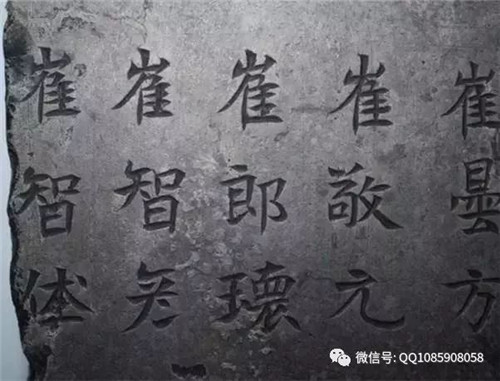 崔曇方
崔敬元
崔郎瓌
崔智
崔智体
微信号: QQ1085908058